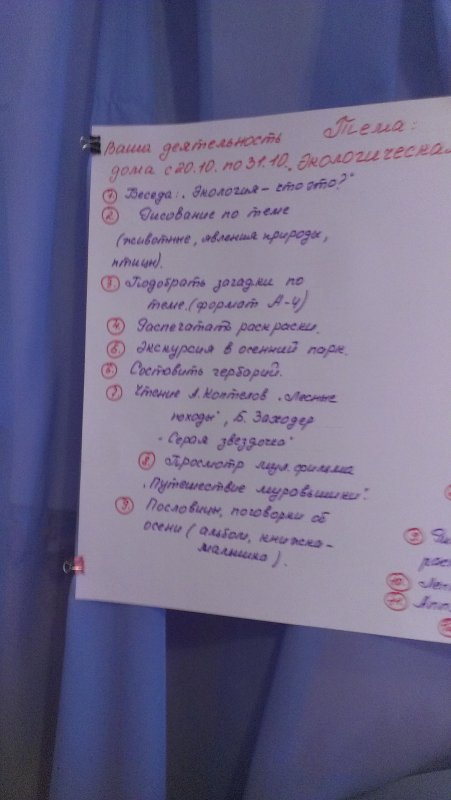 Ваша деятельность Тема:
дома с 20.10. по 31.10. „Экологическая
1. Беседа: „Экология - сто это?"
2. Рисование по теме
(животные, явления природы,
птицы).
3. Подобрать загадки по
теме. (формат А-4)
4. Распечатать раскраски.
5. Экскурсия в осенний парк.
6. Составить гербарий.
7. Чтение А. Коптелов „Лесные
походы", Б. Заходер
„Серая звездочка"
8. Просмотр мул. фильма
„Путешествие муровьишки".
9. Пословицы, поговорки об
осени (альбом, книжка-
малышка).
9.
10.
11.